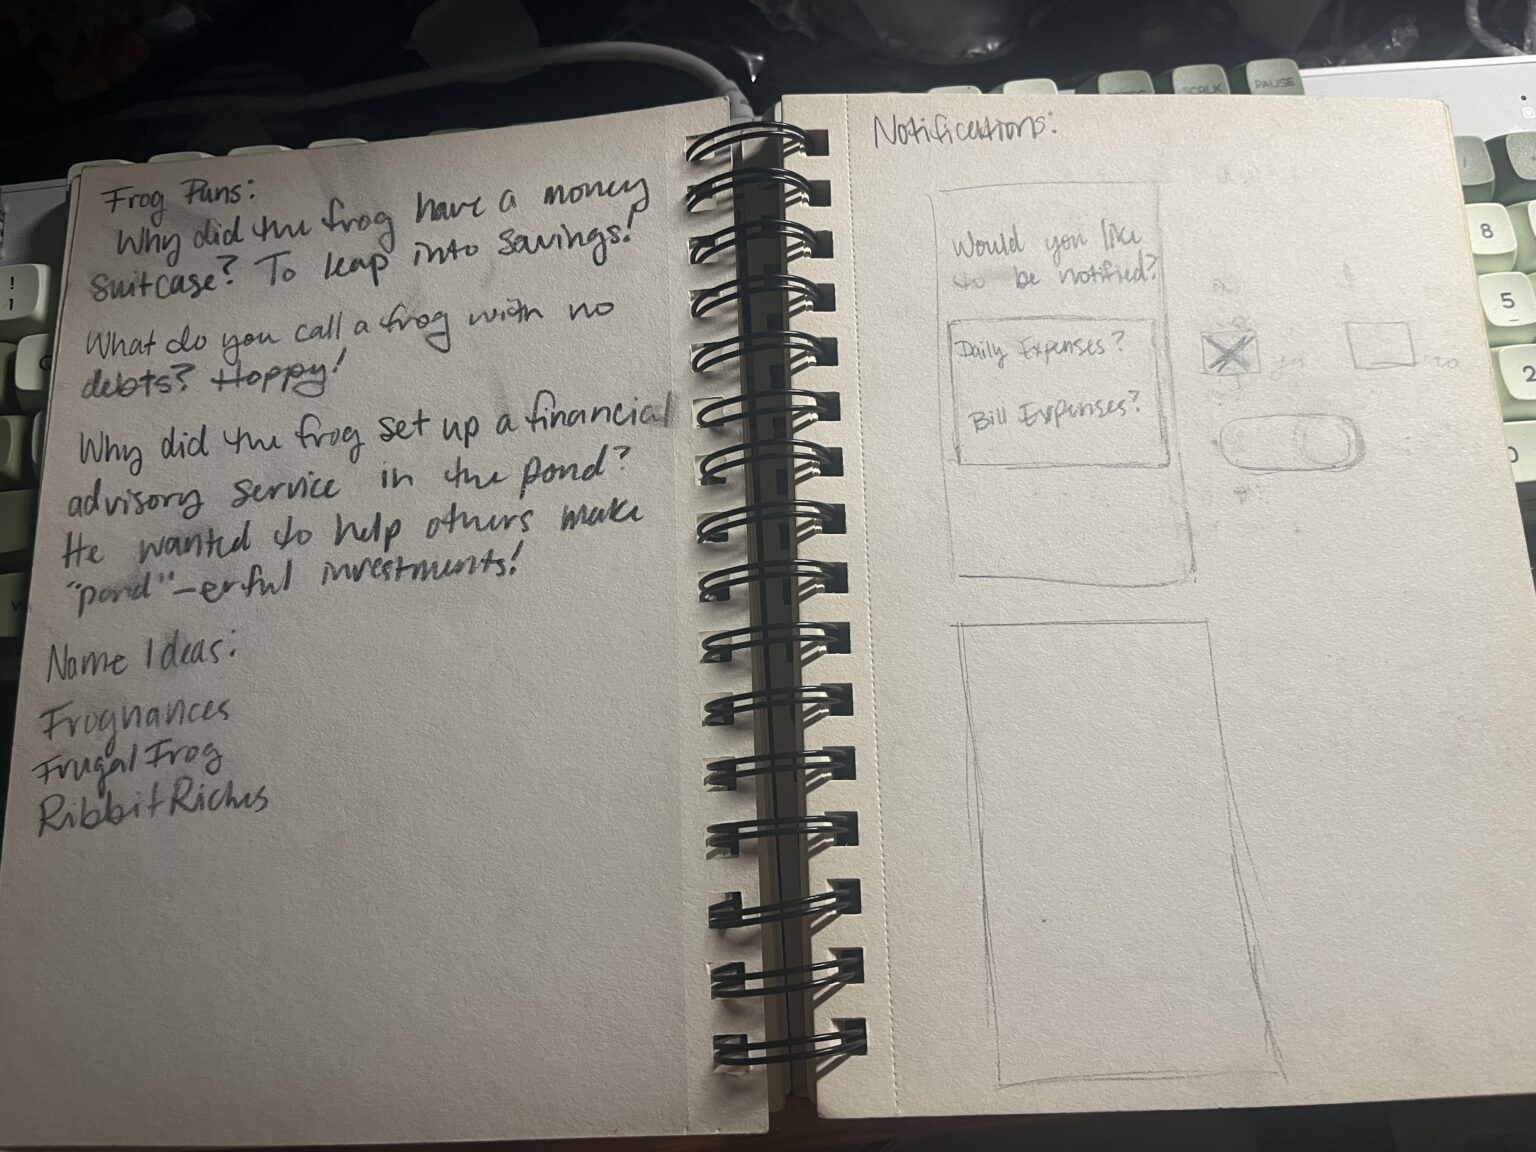 Frog Puns:
Why did the frog have a money
suitcase? To leap into savings!
What do you call a frog with no
debts? Hoppy!
Why did the frog set up a financial
advisory service in the pond?
He wanted to help others make
"pond"-erful investments!
Name Ideas:
Frognances
FrugalFrog
RibbitRiches
Notifications:
Would you like
to be notified?
Daily Expenses?
yes
no
Bill Expenses?
SCRLK
PAUSE
!
1
8
5
2
0